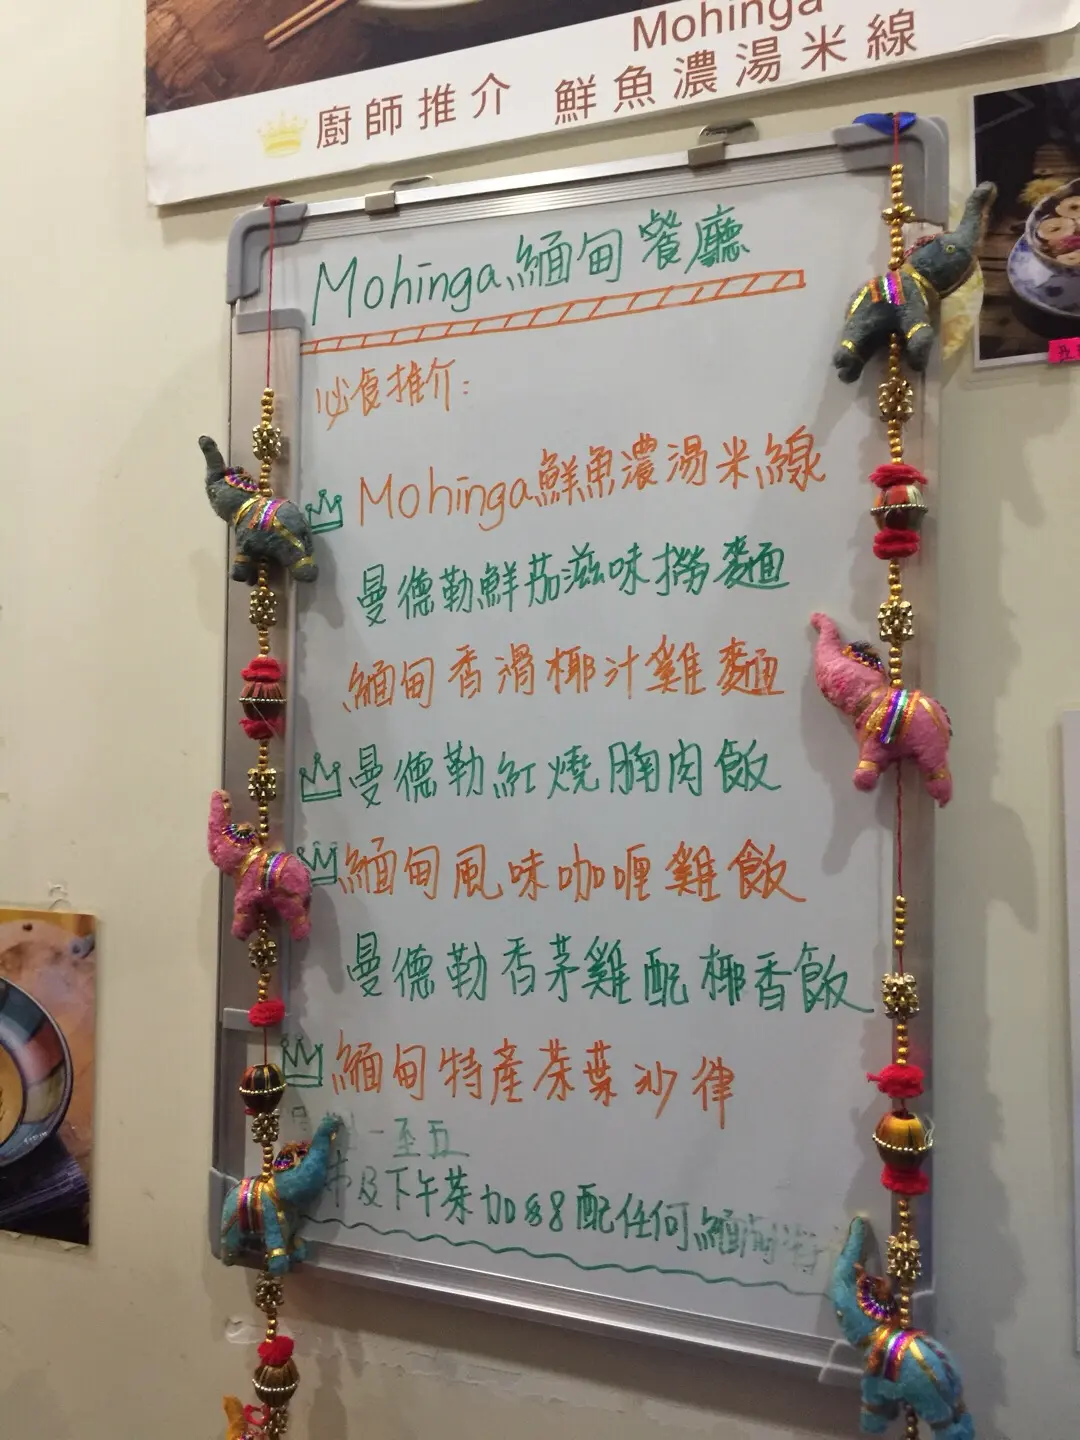 Mohinga
廚師推介 鮮魚濃湯米線
Mohinga緬甸餐廳
必食推介:
Mohinga鮮魚濃湯米線
曼德勒鮮茄滋味撈麵
緬甸香滑椰汁雞麵
曼德勒紅燒腩肉飯
緬甸風味咖喱雞飯
曼德勒香茅雞配椰香飯
緬甸特產茶葉沙律
一至五
市及下午茶加$8配任何緬甸